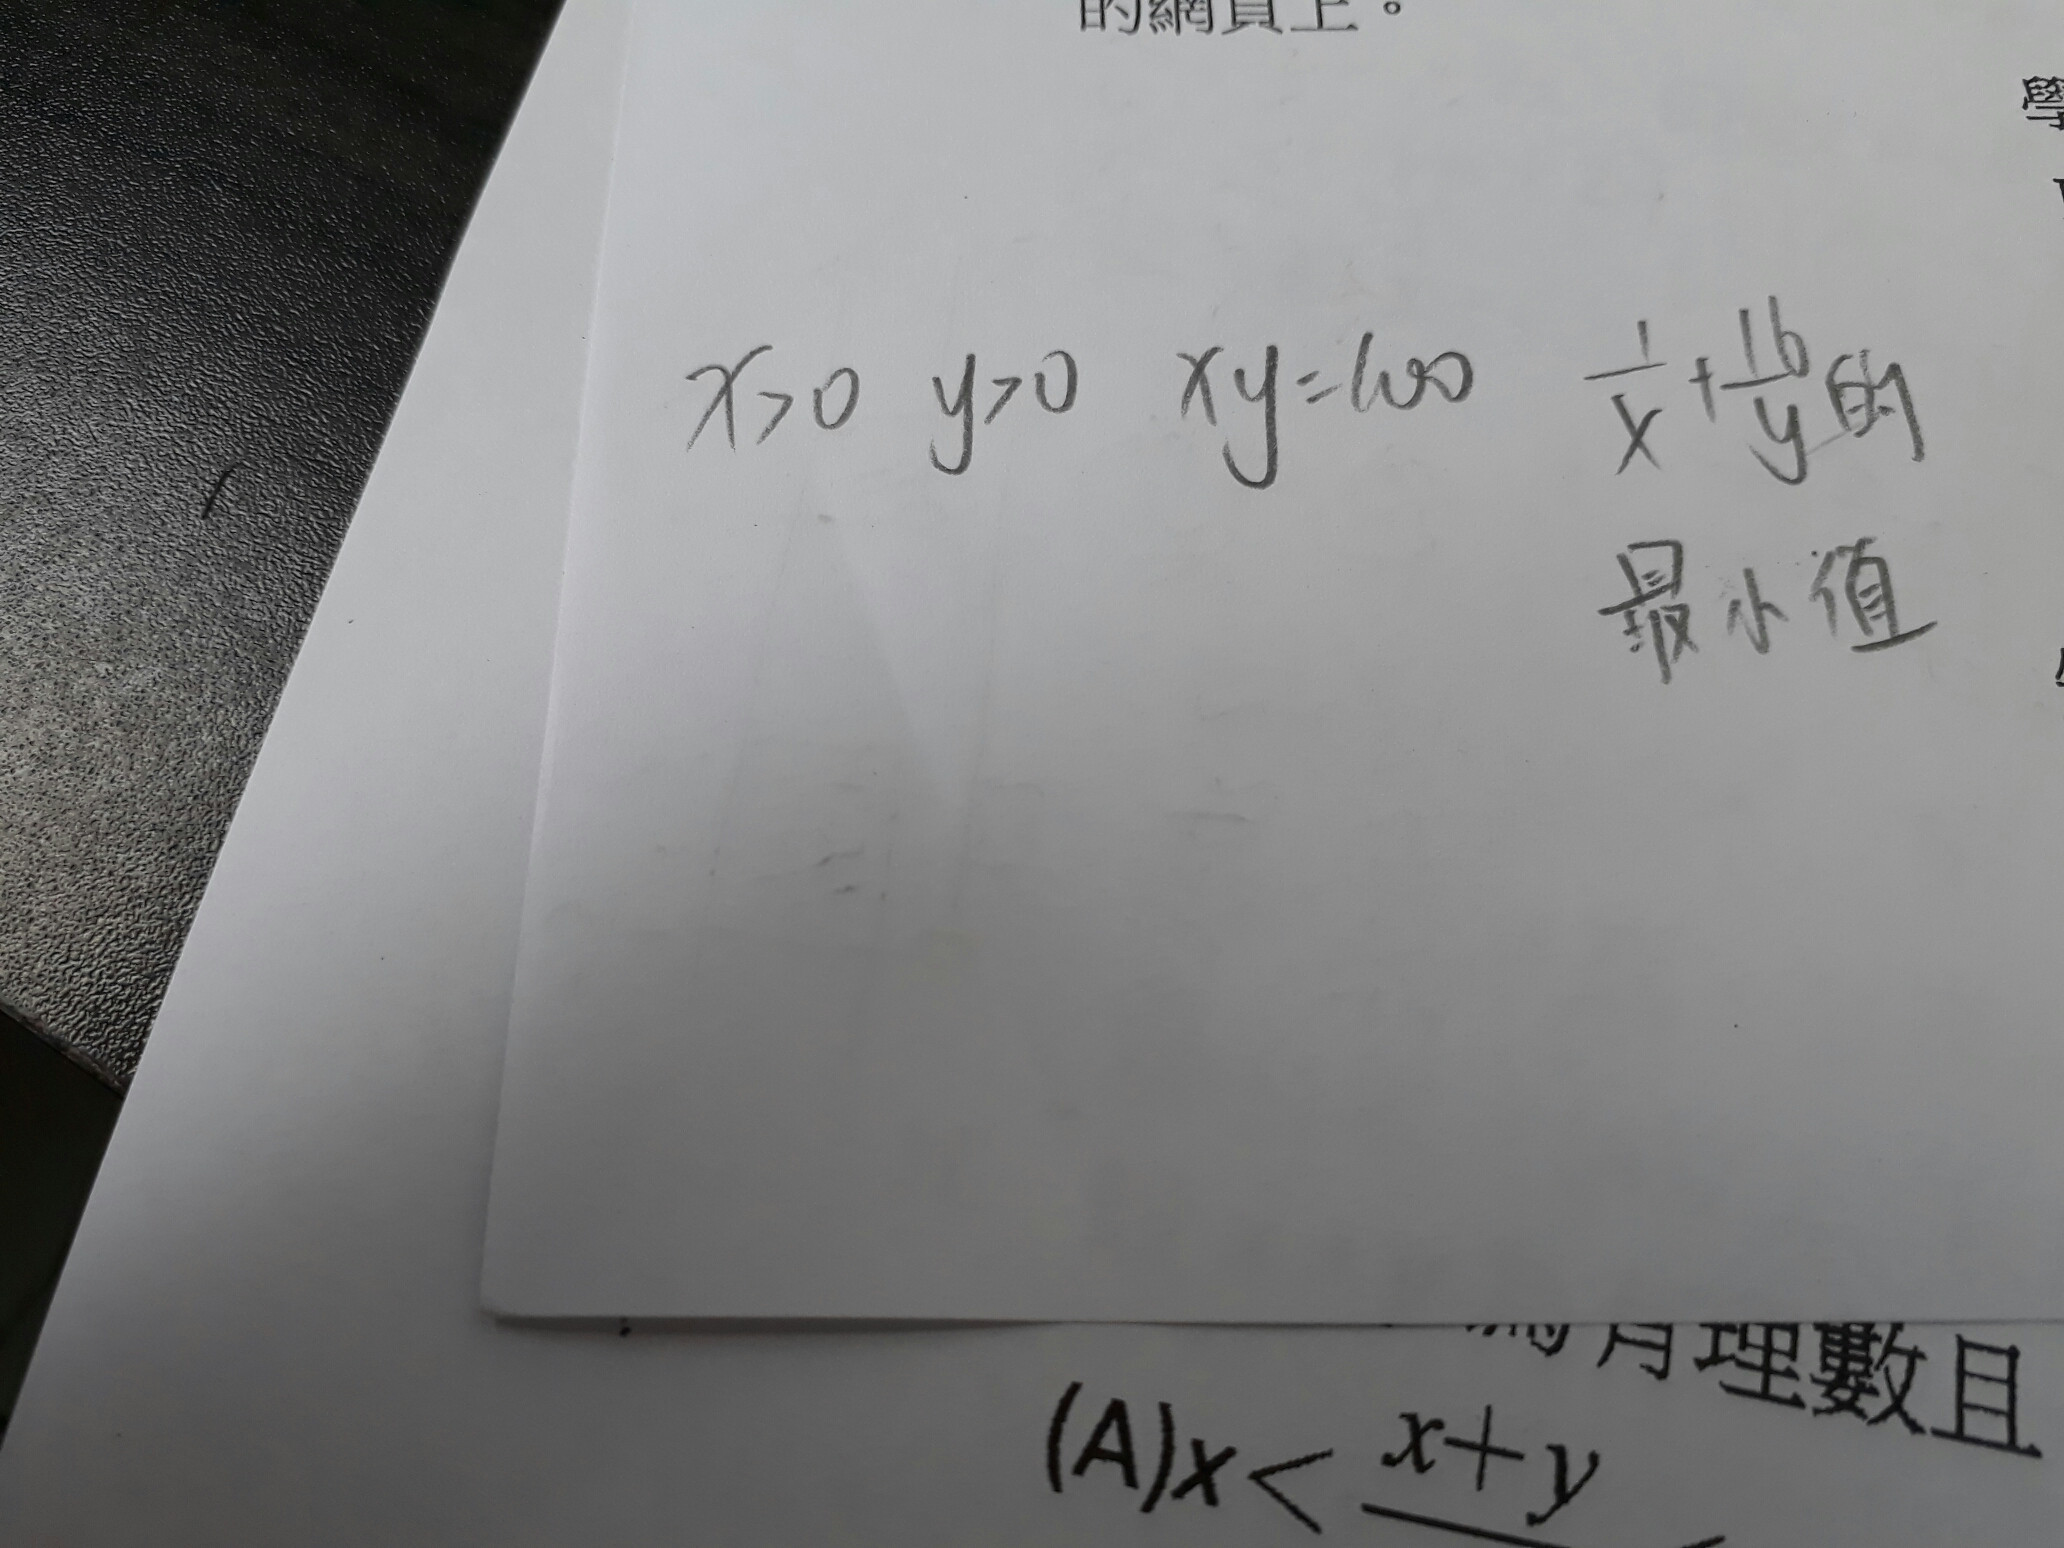 的網頁上。
學
x>0 y>0 xy=100 1/x + 16/y 的
最小值
為有理數且
(A)x < x+y